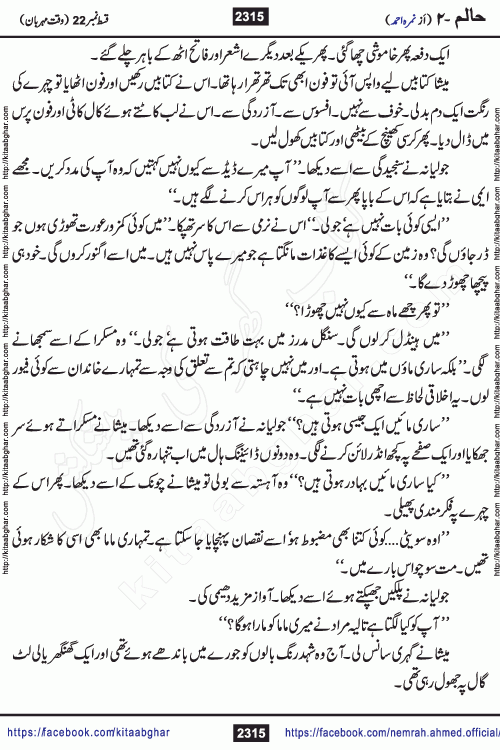 حالم -۲ (از نمرہ احمد)
2315
قسط نمبر 22 (وقت مہربان)
ایک دفعہ پھر خاموشی چھا گئی۔ پھر یکے بعد دیگرے اشعر اور فاتح اٹھ کے باہر چلے گئے۔
میشا کتابیں لیے واپس آئی تو فون ابھی تک تھرتھرا رہا تھا۔ اس نے کتابیں رکھیں اور فون اٹھایا تو چہرے کی
رنگت ایک دم بدلی۔ خوف سے نہیں۔ افسوس سے۔ آزردگی سے۔ اس نے لب کاٹتے ہوئے کال کاٹی اور فون پرس
میں ڈال دیا۔ پھر کرسی کھینچ کے بیٹھی اور کتابیں کھول لیں۔
جولیانہ نے سنجیدگی سے اسے دیکھا۔ ”آپ میرے ڈیڈ سے کیوں نہیں کہتیں کہ وہ آپ کی مدد کریں۔ مجھے
ایمی نے بتایا ہے کہ اس کے بابا پھر سے آپ لوگوں کو ہراس کرنے لگے ہیں۔“
”ایسی کوئی بات نہیں ہے‘ جولی۔“ اس نے نرمی سے اس کا سر تھپکا۔ ”میں کوئی کمزور عورت تھوڑی ہوں جو
ڈر جاؤں گی؟ وہ زمین کے کوئی ایسے کاغذات مانگتا ہے جو میرے پاس نہیں ہیں۔ میں اسے اگنور کروں گی۔ خود ہی
پیچھا چھوڑ دے گا۔“
”تو پھر چھے ماہ سے کیوں نہیں چھوڑا؟“
”میں ہینڈل کر لوں گی۔ سنگل مدرز میں بہت طاقت ہوتی ہے‘ جولی۔“ وہ مسکرا کے اسے سمجھانے
لگی۔ ”بلکہ ساری ماؤں میں ہوتی ہے۔ اور میں نہیں چاہتی کہ تم سے تعلق کی وجہ سے تمہارے خاندان سے کوئی فیور
لوں۔ یہ اخلاقی لحاظ سے اچھی بات نہیں ہے۔“
”ساری مائیں ایک جیسی ہوتی ہیں؟“ جولیانہ نے آزردگی سے اسے دیکھا۔ میشا نے مسکراتے ہوئے سر
جھکایا اور ایک صفحے پہ کچھ انڈر لائن کرنے لگی۔ وہ دونوں ڈائیننگ ہال میں اب تنہا رہ گئی تھیں۔
”کیا ساری مائیں بہادر ہوتی ہیں؟“ وہ آہستہ سے بولی تو میشا نے چونک کے اسے دیکھا۔ پھر اس کے
چہرے پہ فکر مندی پھیلی۔
”اوہ سویٹی.... کوئی کتنا بھی مضبوط ہو‘ اسے نقصان پہنچایا جا سکتا ہے۔ تمہاری ماما بھی اسی کا شکار ہوئی
تھیں۔ مت سوچو اس بارے میں۔“
جولیانہ نے پلکیں جھپکتے ہوئے اسے دیکھا۔ آواز مزید دھیمی کی۔
”آپ کو کیا لگتا ہے تالیہ مراد نے میری ماما کو مارا ہو گا؟“
میشا نے گہری سانس لی۔ آج وہ شہد رنگ بالوں کو جوڑے میں باندھے ہوئے تھی اور ایک گھنگھریالی لٹ
گال پہ جھول رہی تھی۔
http://kitaabghar.com http://kitaabghar.com http://kitaabghar.com http://kitaabghar.com
http://kitaabghar.com http://kitaabghar.com http://kitaabghar.com http://kitaabghar.com
https://facebook.com/kitaabghar
2315
https://facebook.com/nemrah.ahmed.official/